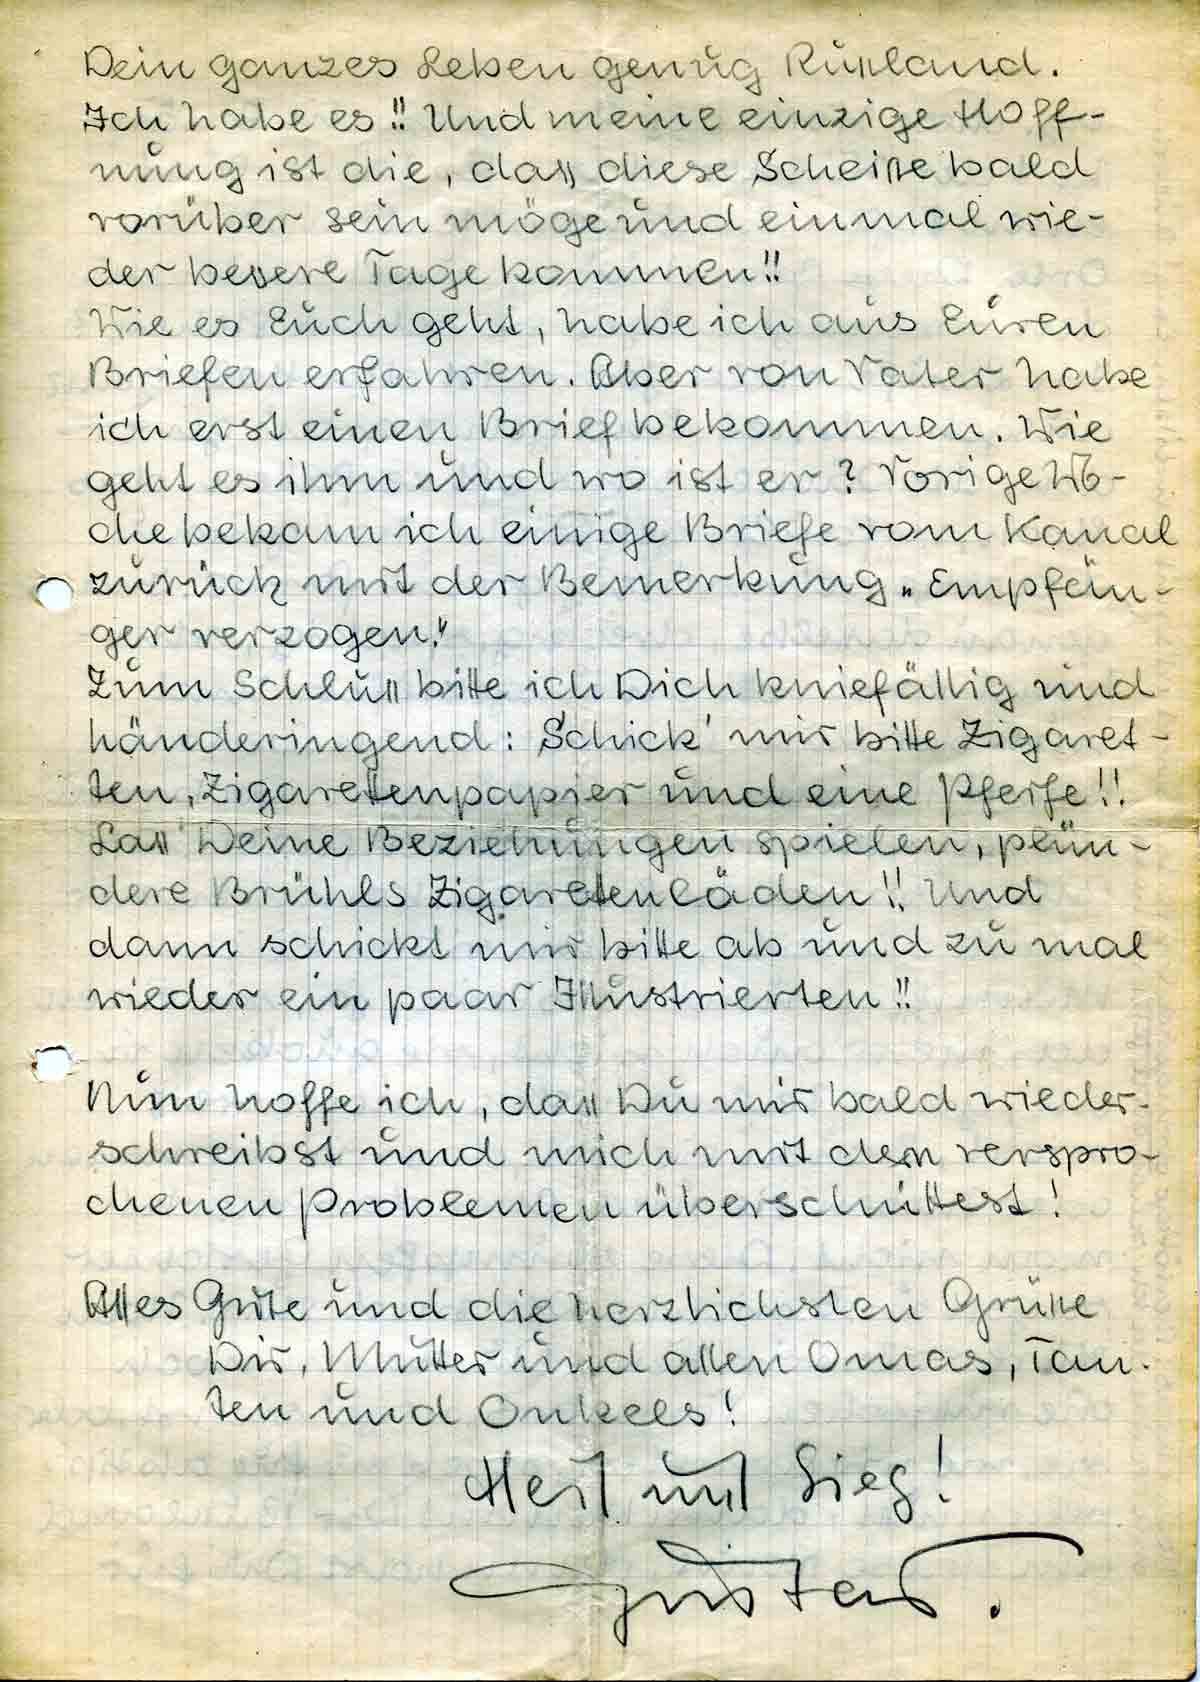 Dein ganzes Leben genug Rußland.
Ich habe es!! Und meine einzige Hoff-
nung ist die, daß diese Scheiße bald
vorüber sein möge und einmal wie-
der bessere Tage kommen!!
Wie es Euch geht, habe ich aus Euren
Briefen erfahren. Aber von Vater habe
ich erst einen Brief bekommen. Wie
geht es ihm und wo ist er? Vorige Wo-
che bekam ich einige Briefe vom Kanal
zurück mit der Bemerkung „Empfän-
ger verzogen."
Zum Schluß bitte ich Dich kniefällig und
händeringend: Schick' mir bitte Zigaret-
ten, Zigarettenpapier und eine Pfeife!!
Laß Deine Beziehungen spielen, plün-
dere Brühls Zigarettenläden!! Und
dann schickt mir bitte ab und zu mal
wieder ein paar Illustrierten!!
Nun hoffe ich, daß Du mir bald wieder-
schreibst und mich mit den verspro-
chenen Problemen überschüttest!
Alles Gute und die herzlichsten Grüße
Dir, Mutter und allen Omas, Tan-
ten und Onkels!
Heil und Sieg!
Gustav.